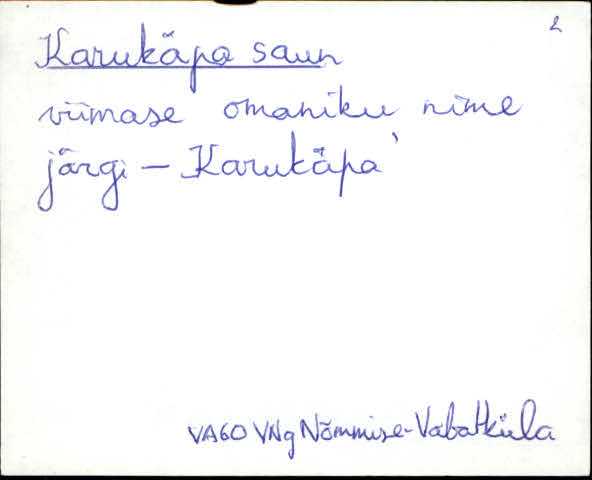 2
Karukäpa saun
viimase omaniku nime
järgi – Karukäpa
VA60 VNg Nõmmise-Vabatküla